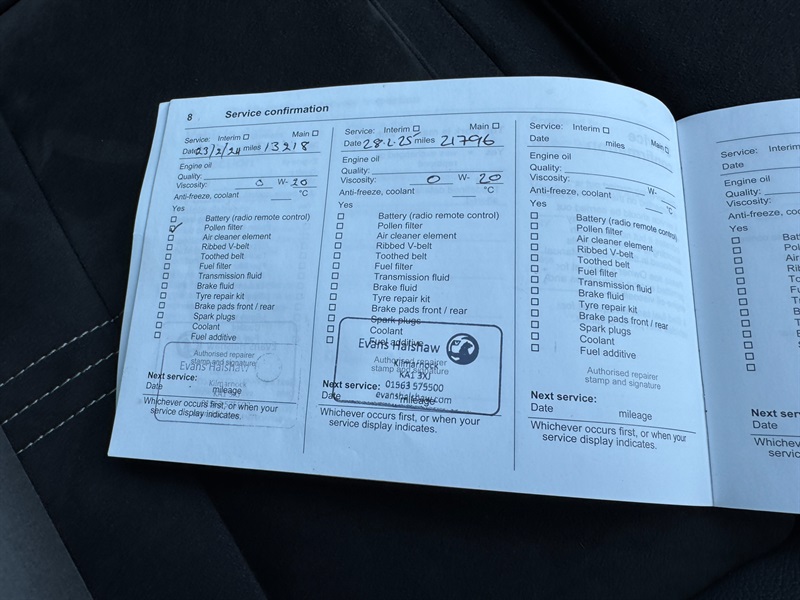 8 Service confirmation
Service: Interim ☐ Main ☐
Date 23/2/24 miles 13218
Engine oil
Quality:
Viscosity: 0 W- 20
Anti-freeze, coolant °C
Yes
☐ Battery (radio remote control)
☑ Pollen filter
☐ Air cleaner element
☐ Ribbed V-belt
☐ Toothed belt
☐ Fuel filter
☐ Transmission fluid
☐ Brake fluid
☐ Tyre repair kit
☐ Brake pads front / rear
☐ Spark plugs
☐ Coolant
☐ Fuel additive
Authorised repairer
stamp and signature
Evans Halshaw
Kilmarnock
Next service:
Date mileage
Whichever occurs first, or when your
service display indicates.
Service: Interim ☐ Main ☐
Date 28.2.25 miles 21796
Engine oil
Quality:
Viscosity: 0 W- 20
Anti-freeze, coolant °C
Yes
☐ Battery (radio remote control)
☐ Pollen filter
☐ Air cleaner element
☐ Ribbed V-belt
☐ Toothed belt
☐ Fuel filter
☐ Transmission fluid
☐ Brake fluid
☐ Tyre repair kit
☐ Brake pads front / rear
☐ Spark plugs
☐ Coolant
☐ Fuel additive
Authorised repairer
stamp and signature
Evans Halshaw
Kilmarnock
KA1 3XJ
01563 575500
evanshalshaw.com
Next service:
Date mileage
Whichever occurs first, or when your
service display indicates.
Service: Interim ☐ Main ☐
Date miles
Engine oil
Quality:
Viscosity: W-
Anti-freeze, coolant °C
Yes
☐ Battery (radio remote control)
☐ Pollen filter
☐ Air cleaner element
☐ Ribbed V-belt
☐ Toothed belt
☐ Fuel filter
☐ Transmission fluid
☐ Brake fluid
☐ Tyre repair kit
☐ Brake pads front / rear
☐ Spark plugs
☐ Coolant
☐ Fuel additive
Authorised repairer
stamp and signature
Next service:
Date mileage
Whichever occurs first, or when your
service display indicates.
Service: Interim
Date
Engine oil
Quality:
Viscosity:
Anti-freeze, coo
Yes
☐ Bat
☐ Pol
☐ Air
☐ Rib
☐ To
☐ Fu
☐ Tr
☐ B
☐ T
☐ B
☐ S
☐
☐
Next serv
Date
Whichev
servic